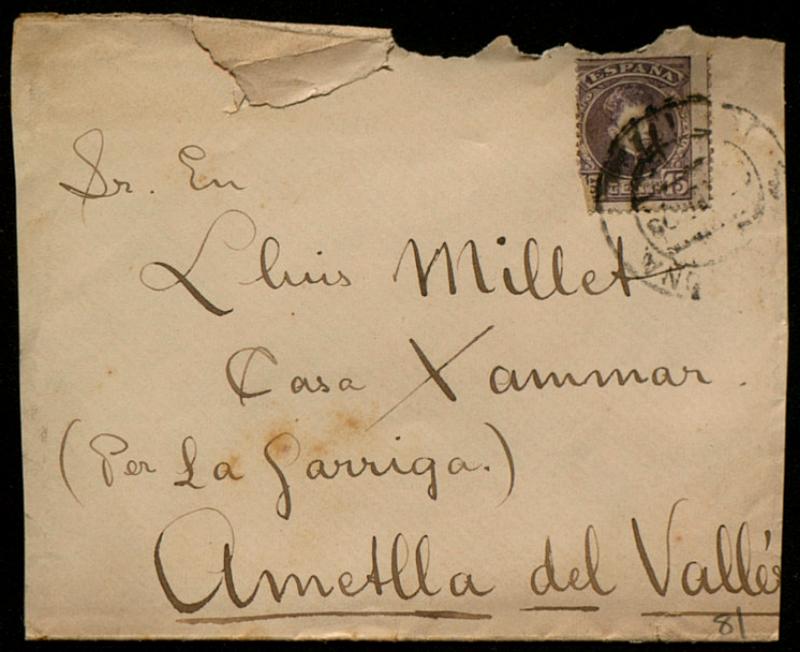 ESPAÑA
15
Sr. En
Lluis Millet
Casa Xammar.
(Per La Garriga.)
Ametlla del Vallés
81